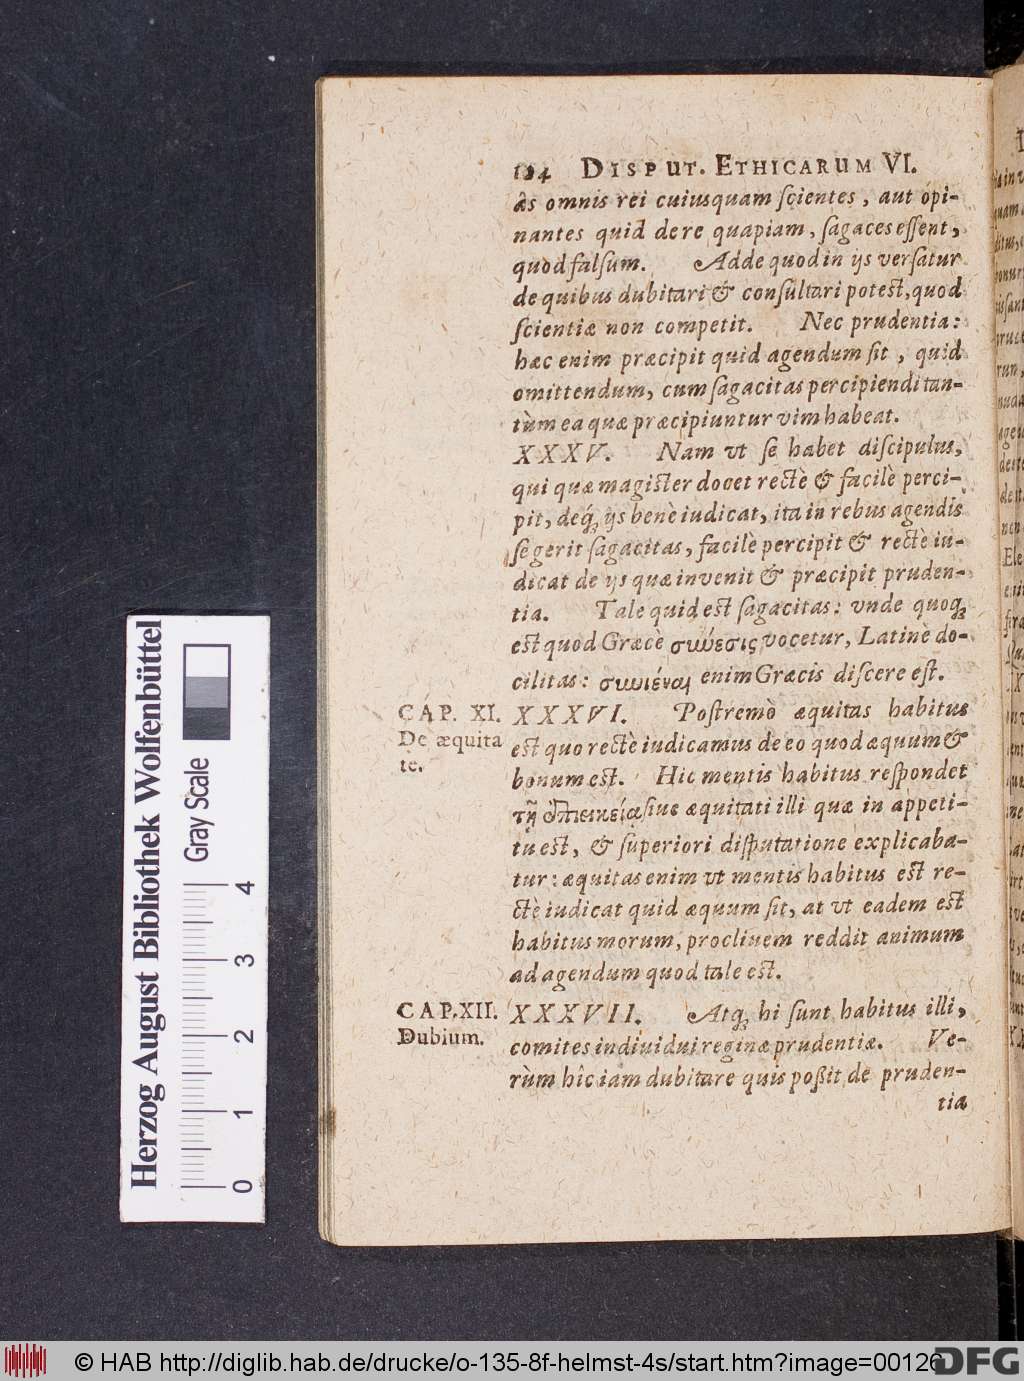 124 DISPUT. ETHICARUM VI.
âs omnis rei cuiusquam ſcientes, aut opi-
nantes quid de re quapiam, ſagaces eſſent,
quod falſum. Adde quod in ijs verſatur
de quibus dubitari & conſultari poteſt, quod
ſcientiæ non competit. Nec prudentia:
hæc enim præcipit quid agendum ſit, quid
omittendum, cum ſagacitas percipiendi tan-
tùm ea quæ præcipiuntur vim habeat.
XXXV. Nam vt ſe habet diſcipulus,
qui quæ magiſter docet rectè & facilè perci-
pit, deq́; ijs benè iudicat, ita in rebus agendis
ſe gerit ſagacitas, facilè percipit & rectè iu-
dicat de ijs quæ invenit & præcipit pruden-
tia. Tale quid eſt ſagacitas: vnde quoq;
eſt quod Græcè σωύεσις vocetur, Latinè do-
cilitas: σωιέναι enim Græcis diſcere eſt.
CAP. XI.
De æquita
te.
XXXVI. Poſtremò æquitas habitus
eſt quo rectè iudicamus de eo quod æquum &
bonum eſt. Hic mentis habitus reſpondet
τῇ ἐπιεικείᾳ ſiue æquitati illi quæ in appeti-
tu eſt, & ſuperiori diſputatione explicaba-
tur: æquitas enim vt mentis habitus eſt re-
ctè iudicat quid æquum ſit, at vt eadem eſt
habitus morum, procliuem reddit animum
ad agendum quod tale eſt.
CAP. XII.
Dubium.
XXXVII. Atq́; hi ſunt habitus illi,
comites indiuidui reginæ prudentiæ. Ve-
rùm hîc iam dubitare quis poßit de pruden-
tia
Herzog August Bibliothek Wolfenbüttel
Gray Scale
0 1 2 3 4
© HAB http://diglib.hab.de/drucke/o-135-8f-helmst-4s/start.htm?image=00126
DFG